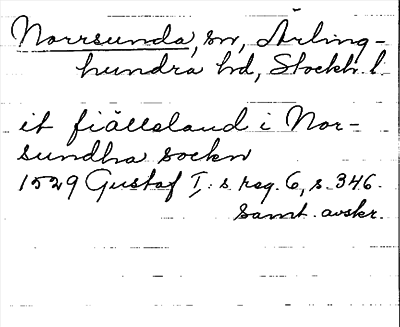 Norrsunda, sn, Ärling-
hundra hd, Stockh. l.
it fiällaland i Nor-
sundha sockn
1529 Gustaf I:s reg. 6, s. 346.
Samt. avskr.